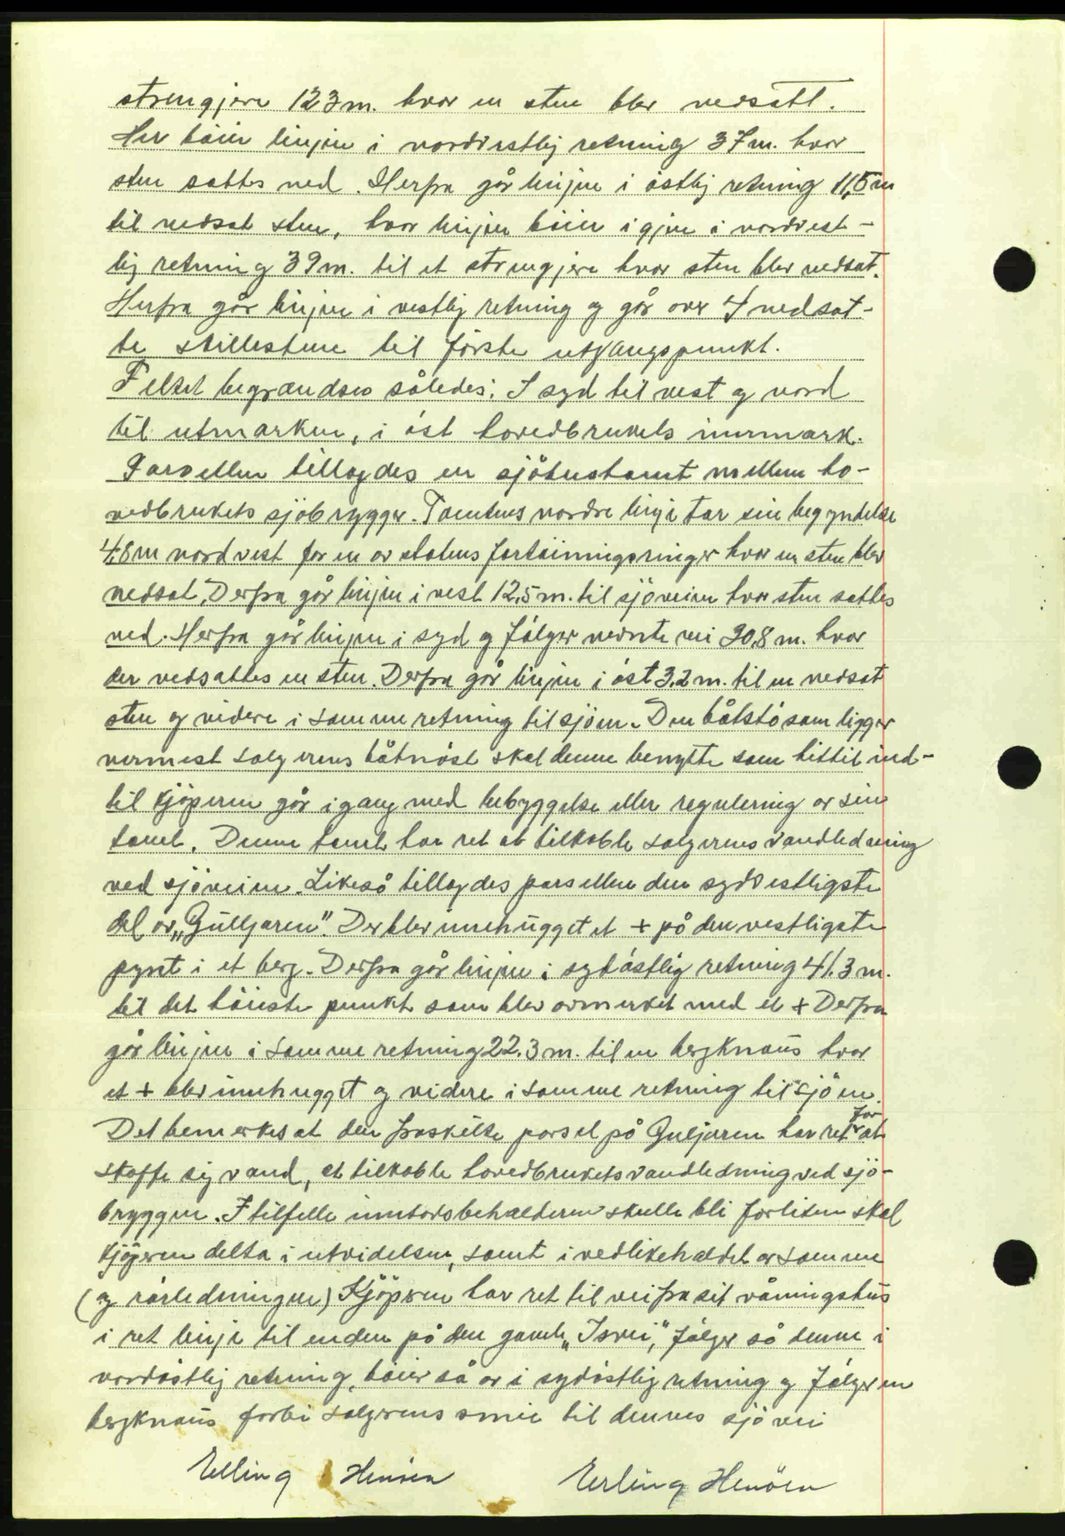 strengjere 123 m. hvor en sten blev nedsatt.
Her böier linjen i nordvestlig retning 37 m. hvor
sten sattes ned. Herfra går linjen i östlig retning 11,5 m
til nedsat sten, hvor linjen böier igjen i nordvest-
lig retning 39 m. til et strengjere hvor sten blev nedsat.
Herfra går linjen i vestlig retning og går over 4 nedsat-
te skillestene til förste utgangspunkt.
Feltet begrændses således: I syd til vest og nord
til utmarken, i öst hovedbrukets innmark.
Parsellen tillagdes en sjöhustomt mellem ho-
vedbrukets sjöbrygger. Tomtens nordre linje tar sin begyndelse
4,8 m nordvest for en av statens fortöiningsringer hvor en sten blev
nedsat. Derfra går linjen i vest 12,5 m. til sjöveien hvor sten sattes
ned. Herfra går linjen i syd og fölger nevnte vei 20,8 m. hvor
der nedsattes en sten. Derfra går linjen i öst 3,2 m. til en nedsat
sten og videre i samme retning til sjöen. Den båtstö som ligger
nermest selgerens båtnöst skal denne benytte som hittil ind-
til kjöperen går igang med bebyggelse eller regulering av sin
tomt. Denne tomt har ret at tilkoble selgerens vandledning
ved sjöveien. Likeså tillagdes parsellen den sydvestligste
del av "Gulljaren". Der blev innhugget et + på den vestligste
pynt i et berg. Derfra går linjen i sydöstlig retning 41,3 m.
til det höieste punkt som blev avmerket med et + Derfra
går linjen i samme retning 22,3 m. til en bergknaus hvor
et + blev innhugget og videre i samme retning til sjöen.
Det bemerkes at den fraskilte parsel på Guljaren har ret for at
skaffe sig vand, at tilkoble hovedbrukets vandledning ved sjö-
bryggen. I tilfelle inntaksbeholderen skulle bli for liten skal
kjöperen delta i utvidelsen, samt i vedlikeholdet av samme
(og rörledningen) Kjöperen har ret til vei fra sit våningshus
i ret linje til enden på den gamle "Isvei", fölger så denne i
nordöstlig retning, böier så av i sydöstlig retning og fölger en
bergknaus forbi selgerens smie til dennes sjövei
Elling Henöen Erling Henöen